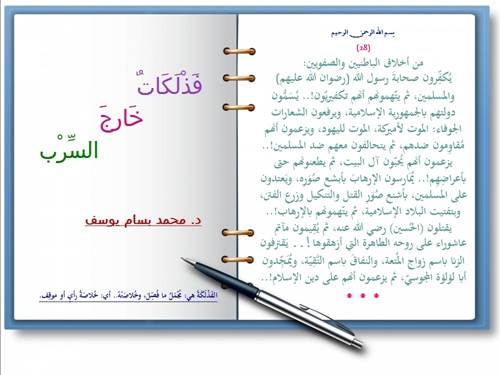 بسم الله الرحمن الرحيم
(28)
من أخلاق الباطنيين والصفويين:
يُكفّرون صحابةَ رسول الله (رضوان الله عليهم)
والمسلمين، ثم يتّهمونهم أنهم تكفيريّون!.. يُسَمُّون
دولتهم بالجمهورية الإسلامية، ويرفعون الشعارات
الجوفاء: الموت لأميركة، الموت لليهود، ويزعمون أنهم
مُقاوِمون ضدهم، ثم يتحالفون معهم ضد المسلمين!..
يزعمون أنهم يُحبّون آل البيت، ثم يطعنونهم حتى
بأعراضِهم!.. يُمارسون الإرهابَ بأبشع صُوَرِه، ويَعتدون
على المسلمين، بأبشع صُوَرِ القتل والتنكيل وزرع الفتن،
وبتفتيت البلاد الإسلامية، ثم يتّهمونهم بالإرهاب!..
يقتلون (الحُسين) رضي الله عنه، ثم يُقيمون مآتم
عاشوراء على روحه الطاهرة التي أزهقوها!.. يَقترفون
الزنا باسم زواج المُتعة، والنفاقَ باسم التَّقِيّة، ويُمَجِّدون
أبا لؤلؤة المجوسيّ، ثم يزعمون أنهم على دين الإسلام!..
فَذْلَكَاتٌ
خَارِجَ
السِّرْبِ
د. محمد بسام يوسف
الفَذْلَكَةُ هي: مُجْمَلُ ما فُصِّلَ، وخُلاصَتُهُ.. أي: خُلاصَةُ رأيٍ أو موقِف.